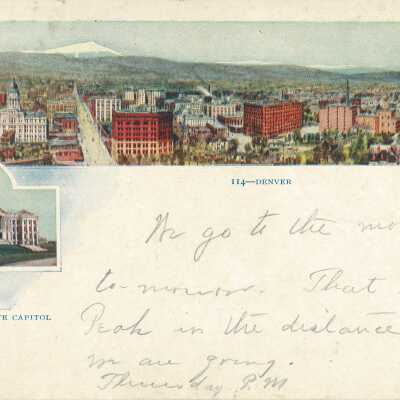 114—DENVER
We go to the mo
to-morrow. That
TE CAPITOL
Peak in the distance
we are going.
Thursday P.M